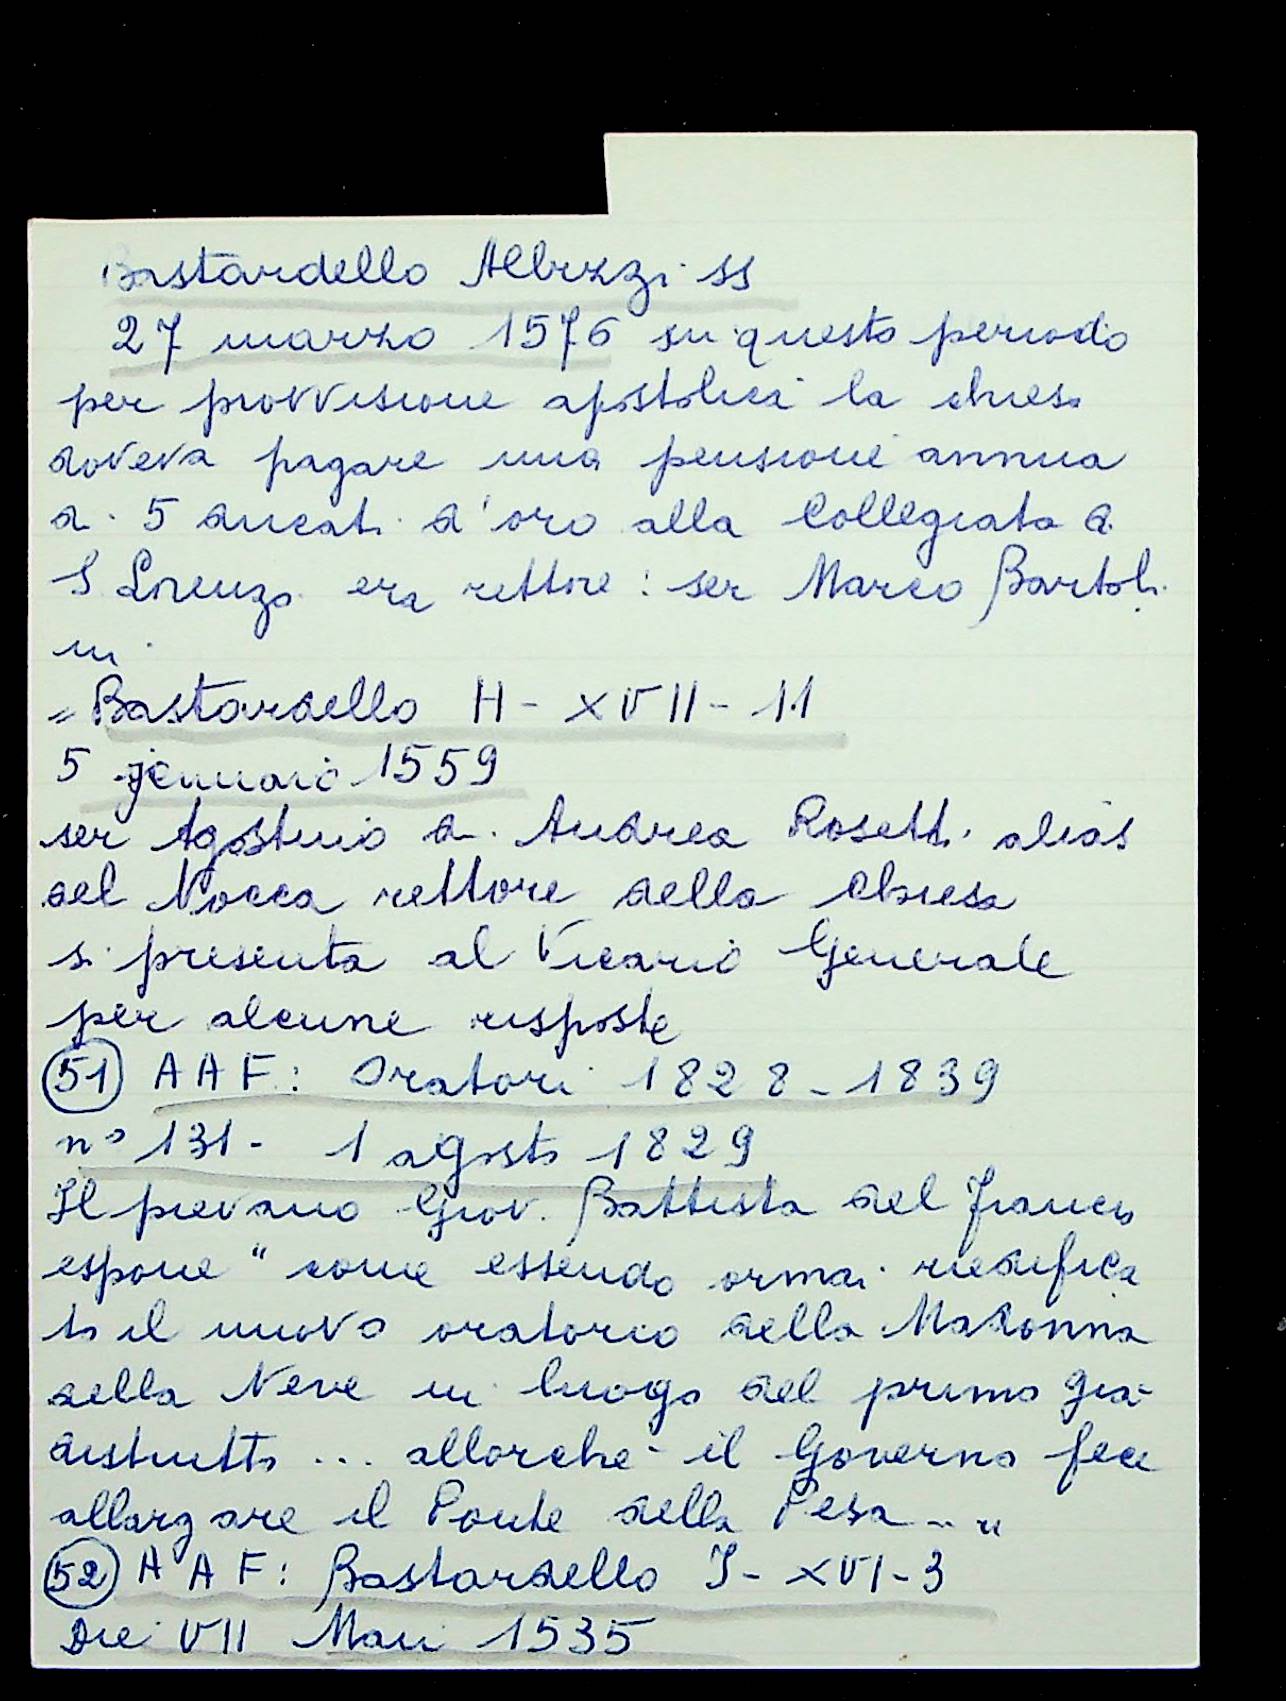 Bastardello Albizzi ss
27 marzo 1576 in questo periodo
per provvisione apostolica la chiesa
doveva pagare una pensione annua
di 5 ducati d'oro alla Collegiata di
S Lorenzo era rettore: ser Marco Bartoli
ni
= Bastardello H - XVII - 11
5 jennaio 1559
ser Agostino di Andrea Rosetti alias
del Nocca rettore della chiesa
si presenta al Vicario Generale
per alcune risposte
(51) AAF: Oratori 1828-1839
n° 131- 1 agosto 1829
Il pievano Giov. Battista del Franco
espone " come essendo ormai riedifica
to il nuovo oratorio della Madonna
della Neve in luogo del primo già
distrutto ... allorchè il Governo fece
allargare il Ponte della Pesa.. "
(52) AAF: Bastardello I - XVI - 3
Die VII Maii 1535